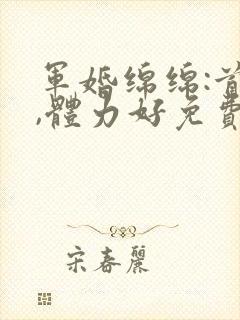 軍婚綿綿:首
,體力好免費
宋春麗